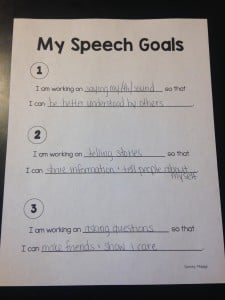 My Speech Goals
1
I am working on saying my /th/ sound so that
I can be better understood by others.
2
I am working on telling stories so that
I can share information + tell people about
myself
3
I am working on asking questions so that
I can make friends + show i care.